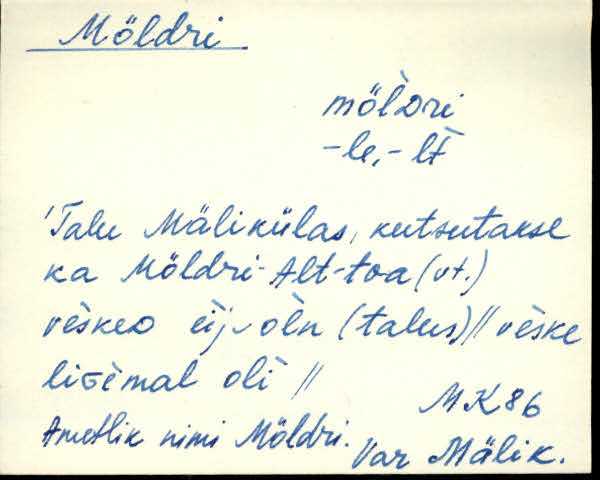 Möldri
möl̀dri
-le, -lt̀
'Talu Mäliküla­s, kutsutakse
ka Möldri-Alt-toa (vt.)
vèsked èij òln (talus) // vèske
ligèmal oli //
MK86
Ametlik nimi Möldri.
Var Mälik.